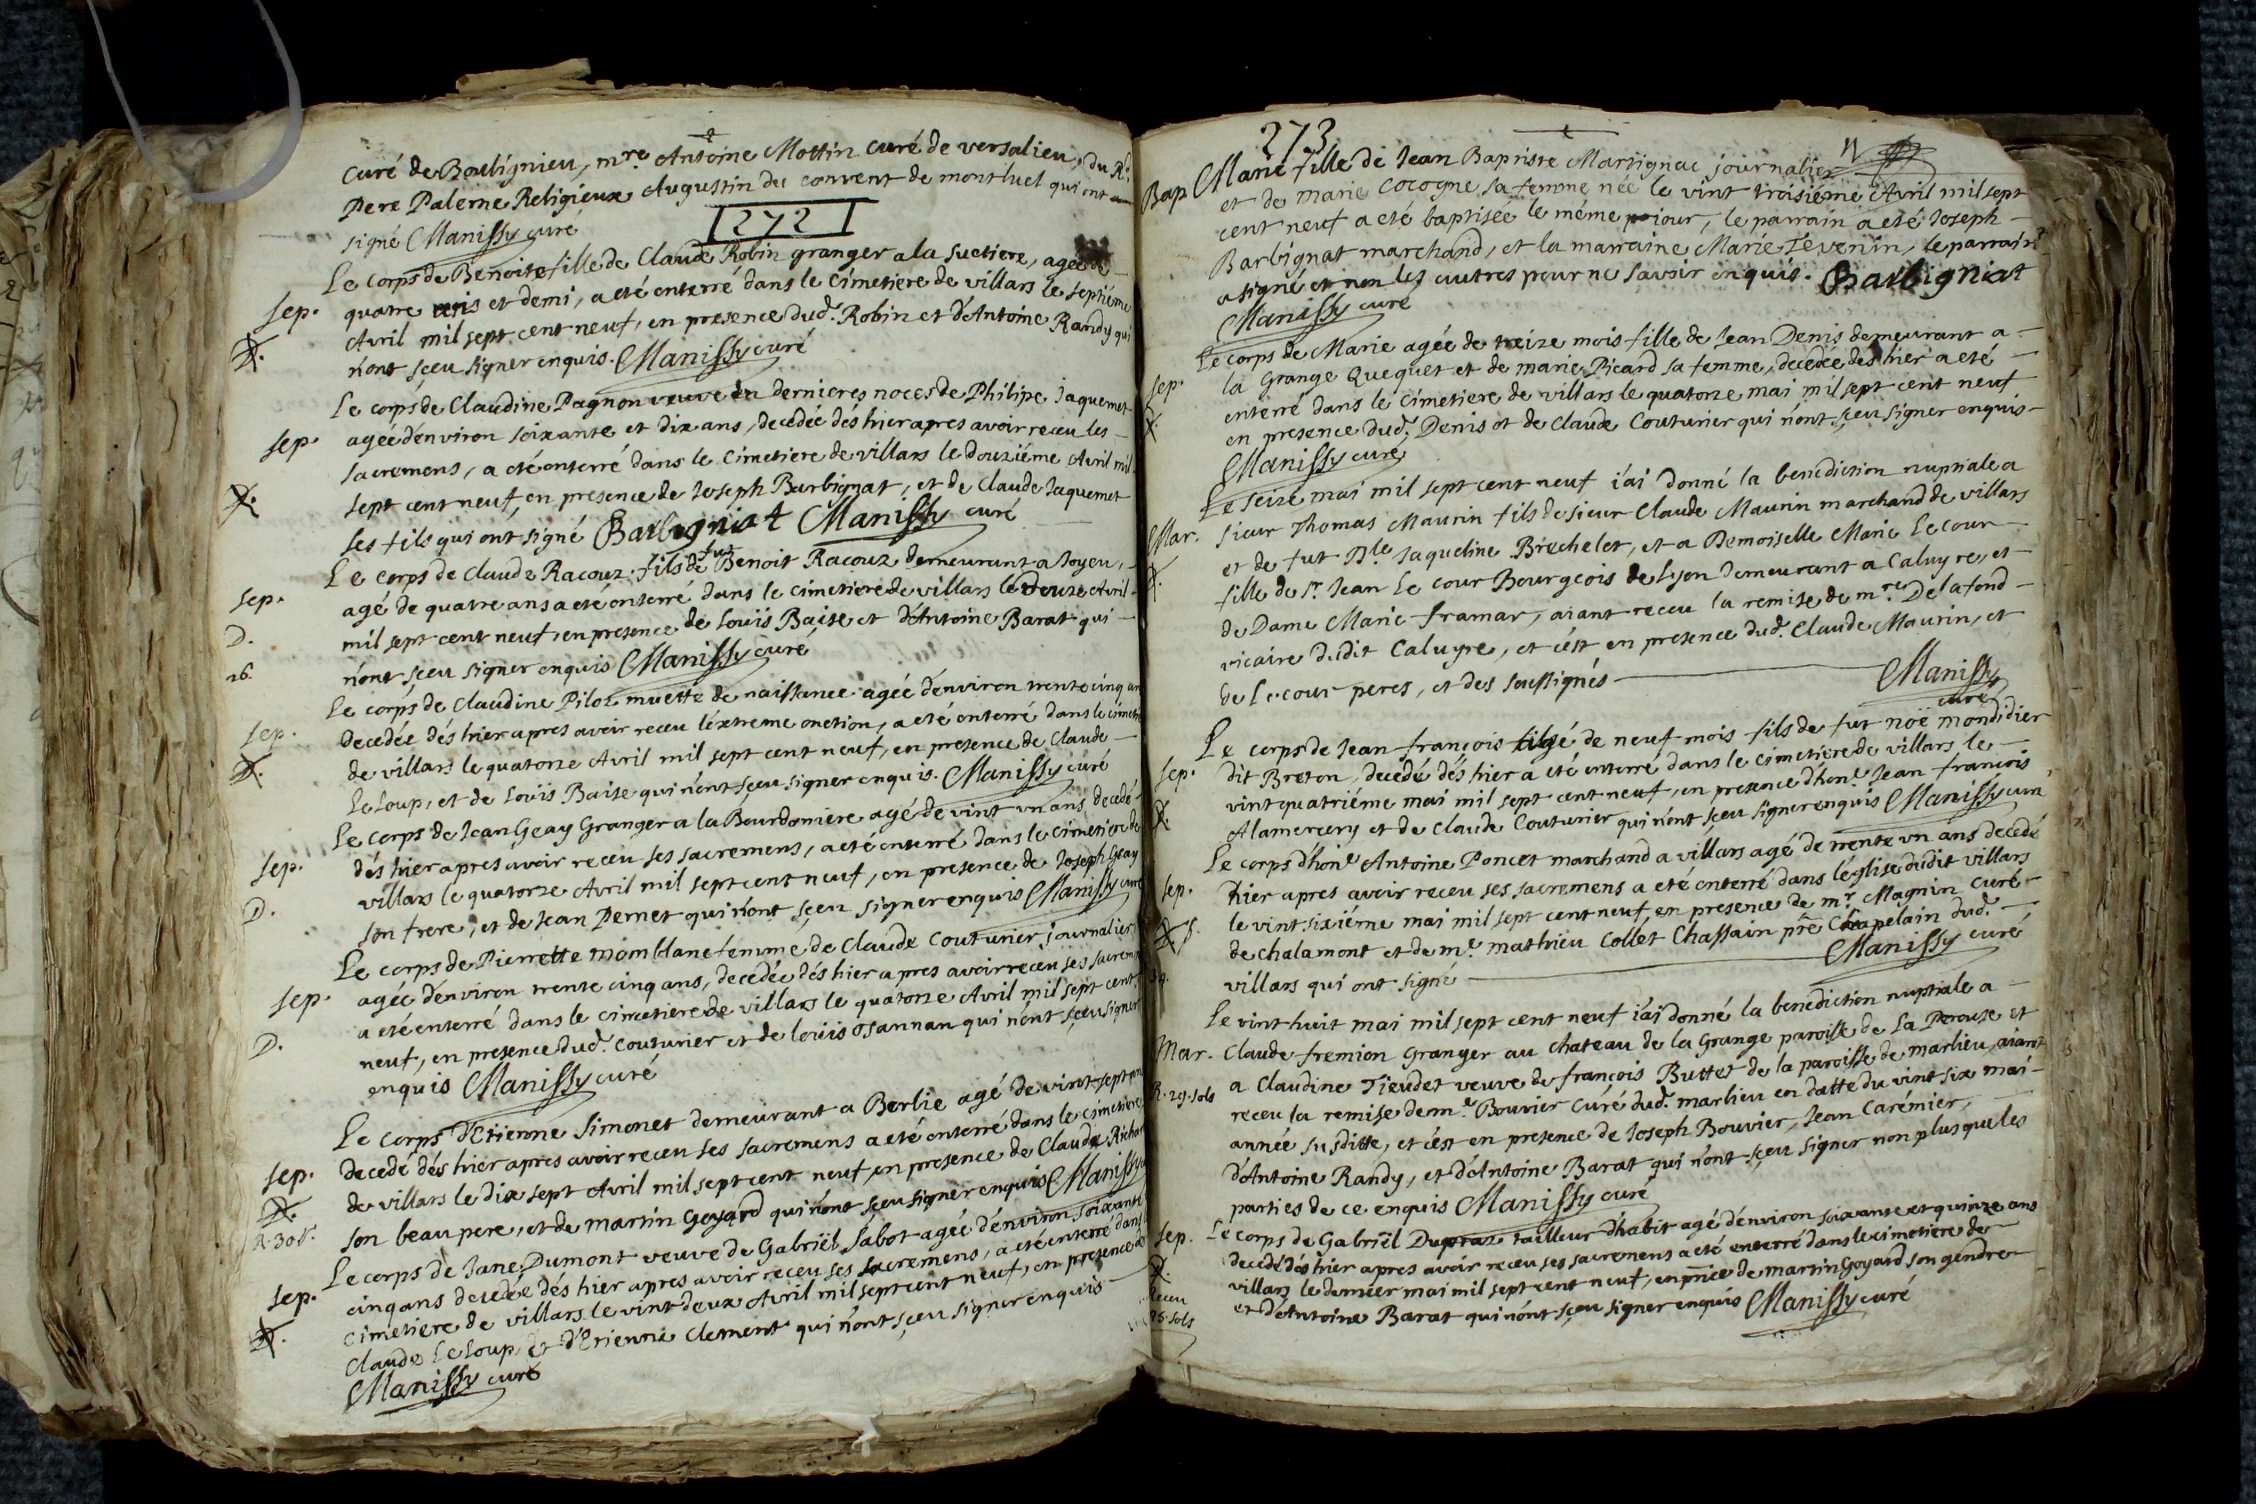 curé de Boulignieu, m.re Antoine Mottin curé de versalieu, du R.d
Pere Palerne Religieux Augustin du convent de montluel qui ont
signé Manissy curé
272
Le corps de Benoite fille de Claude Robin granger a la suetiere, agée de
sep. quatre et demi, a eté enterré dans le Cimetiere de villars le septiéme
D. Avril mil sept cent neuf, en presence dud. Robin et d'Antoine Randy qui
n'ont sçeu signer enquis. Manissy curé
Le corps de Claudine Pagnon veuve en dernieres noces de Philipe Jaquemet
sep. agée d'environ soixante et dix ans, decedée dés hier apres avoir receu les
sacremens, a eté enterré dans le Cimetiere de villars le douziéme Avril mil
D. sept cent neuf, en presence de Joseph Barbignat, et de Claude Jaquemet
ses fils qui ont signé Barbigniat Manissy curé
Le corps de Claude Racouz fils de fut Benoit Racouz demeurant a Joyeu,
sep. agé de quatre ans a eté enterré dans le cimetiere de villars le douze Avril
D. mil sept cent neuf, en presence de Louïs Baise et d'Antoine Barat qui
26. n'ont sçeu signer enquis Manissy curé
Le corps de Claudine Piloz muette de naissance agée d'environ trente cinq an
sep. decedée dés hier apres avoir receu l'extreme onction, a eté enterré dans le cimeti
D. de villars le quatorze Avril mil sept cent neuf, en presence de Claude
Le Loup, et de Louïs Baise qui n'ont sçeu signer enquis. Manissy curé
Le corps de Jean Geay Granger a la Bourdoniere agé de vint vn ans decedé
sep. dés hier apres avoir receu ses sacremens, a eté enterré dans le cimetiere de
D. villars le quatorze Avril mil sept cent neuf, en presence de Joseph Geay
son frere, et de Jean Pernet qui n'ont sçeu signer enquis Manissy curé
Le corps de Pierrette momblanc femme de Claude Couturier journalier
sep. agée d'environ trente cinq ans, decedée dés hier apres avoir receu ses sacrem
a eté enterré dans le cimetiere de villars le quatorze Avril mil sept cent
D. neuf, en presence dud. Couturier et de louïis osannan qui n'ont sçeu signer
enquis Manissy curé
Le corps d'Etienne Simonet demeurant a Berlie agé de vint sept an
sep. decedé dés hier apres avoir receu ses sacremens a eté enterré dans le cimetiere
D. de villars le dix sept Avril mil sept cent neuf, en presence de Claude Richar
R. 30 s. son beau pere, et de martin Goyard qui n'ont sçeu signer enquis Manissy
Le corps de Jane Dumont veuve de Gabriël Sabot agée d'environ soixante
sep. cinq ans decedée dés hier apres avoir receu ses sacremens, a eté enterré dans
cimetiere de villars le vint deux Avril mil sept cent neuf, en presence de
D. Claude Le Loup, et d'Etienne Clement qui n'ont sçeu signer enquis
Manissy curé
273
Bap Marie fille de Jean Baptiste Martignac journalier
et de marie Cocogne sa femme née le vint troisiéme Avril mil sept
cent neuf a eté baptisée le méme jour, le parrain a eté Joseph
Barbignat marchand, et la marraine Marie Tevenin, le parrain
a signé et non les autres pour ne savoir enquis. Barbigniat
Manissy curé
Le corps de Marie agée de treize mois fille de Jean Denis demeurant a
sep. la Grange Quequet et de marie Picard sa femme, decedée dés hier a eté
D. enterré dans le Cimetiere de villars le quatorze mai mil sept cent neuf
en presence dud. Denis et de Claude Couturier qui n'ont sçeu signer enquis
Manissy curé
Le seize mai mil sept cent neuf i'ai donné la benediction nuptiale a
Mar. sieur Thomas Maurin fils de sieur Claude Maurin marchand de villars
et de fut D.le Jaqueline Brechelet, et a Demoiselle Marie Le cour
D. fille de s.r Jean Le cour Bourgeois de Lyon demeurant a Caluyre, et
de Dame Marie framar, aiant receu la remise de m.re De la fond
vicaire dudit Caluyre, et c'est en presence dud. Claude Maurin, et
de Le cour peres, et des soussignés Manissy
curé
Le corps de Jean françois agé de neuf mois fils de fut noë mondidier
sep. dit Breton, decedé dés hier a eté enterré dans le cimetiere de villars le
vint quatriéme mai mil sept cent neuf, en presence d'hon.e Jean françois
D. Alamercery et de Claude Couturier qui n'ont sçeu signer enquis Manissy curé
Le corps d'hon.e Antoine Poncet marchand a villars agé de trente vn ans decedé
sep. hier apres avoir receu ses sacremens a eté enterré dans l'église dudit villars
le vint sixiéme mai mil sept cent neuf, en presence de m.r Magnin curé
D. de chalamont et de m.e mathieu Collet Chassain pre Chapelain dud.
villars qui ont signé Manissy curé
Le vint huit mai mil sept cent neuf i'ai donné la benediction nuptiale a
Mar. Claude fremion Granger au chateau de la Grange paroisse de La Perouse et
a Claudine Tieudet veuve de françois Buttet de la paroisse de marlieu, aiant
R. 29. sols receu la remise de m.e Bouvier curé dud. marlieu en datte du vint six mai
année susditte, et c'est en presence de Joseph Bouvier, Jean Carémier,
d'Antoine Randy, et d'Antoine Barat qui n'ont sçeu signer non plus que les
parties de ce enquis Manissy curé
sep. Le corps de Gabriël Dupraz tailleur d'habit agé d'environ soixante et quinze ans
D. decedé dés hier apres avoir receu ses sacremens a eté enterré dans le cimetiere de
receu villars le dernier mai mil sept cent neuf, en pnce de martin Goyard son gendre
25. sols et d'Antoine Barat qui n'ont sçeu signer enquis Manissy curé